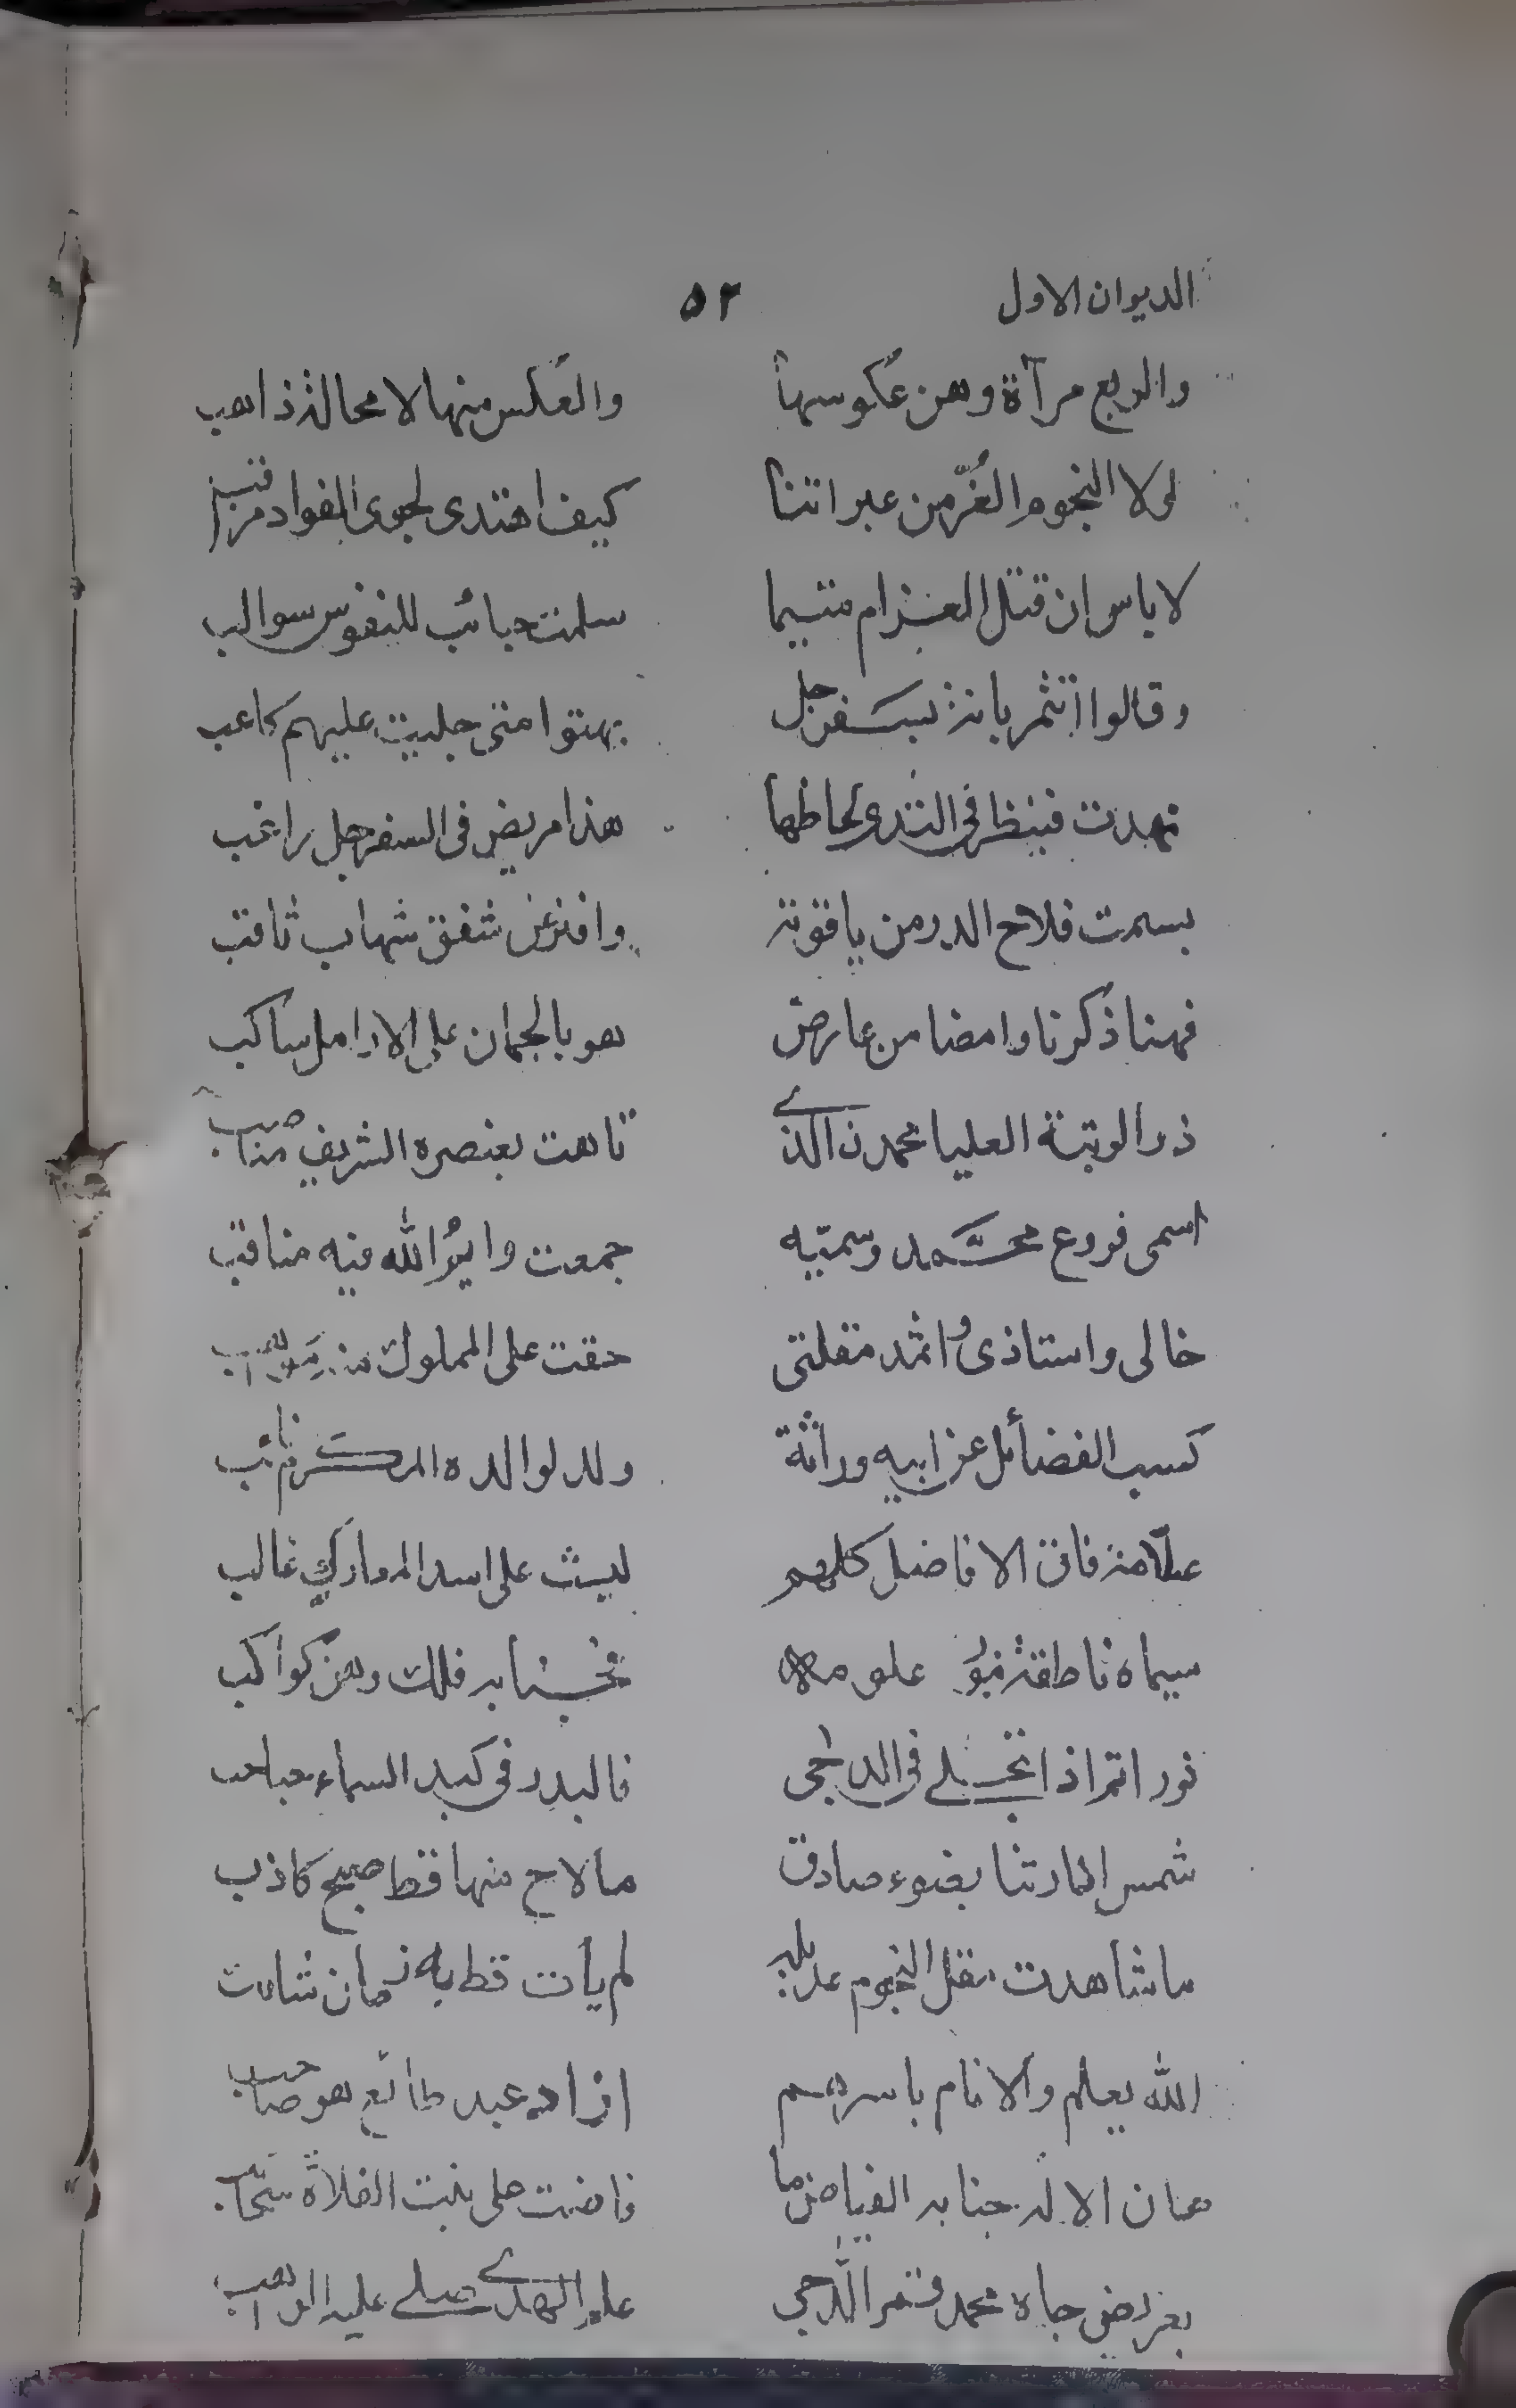 الديوان الاول ٥٢
والربع مرآة وهن عكوسها والعكس منها لا محالة ذاهب
لولا النجوم الغُرّ من عبراتنا كيف اهتدى لجوى الفواد مراقب
لا باس ان قتل الغرام متيما سلمت حبائب للنفوس سوالب
وقالوا اتثمر بانة بسفرجل بهتوا متى جليت عليهم كاعب
نهدت فينظر في الثدى لحاظها هذا مريض فى السفرجل راغب
بسمت فلاح الدر من ياقوتة وافتر عن شفق شهاب ثاقب
فهنا ذكرنا وامضا من عارض هو بالجمان على الارامل ساكب
ذو الرتبة العليا محمدن الذي تاهت بعنصره الشريف مناصب
اسمى فروع محمد وسميّه جمعت وايمُ الله فيه مناقب
خالى واستاذى واثمد مقلتى حقت على المملوك منه مواهب
كسب الفضائل عن ابيه وراثة ولد لوالده المكرم نائب
علّامة فاق الافاضل كلهم ليث على اسد المعارك غالب
سيماه ناطقة بنور علومه فلك وهن كواكب
نور اتم اذا تجلے فى الدجى فالبدر فى كبد السماء حباحب
شمس انارتنا بضوء صادق ما لاح منها قط صبح كاذب
ما شاهدت مقل النجوم عديله لم يأت قط به زمان
الله يعلم والانام باسرهم ازاد عبد طائع هو صاحب
صان الاله جنابه الفياض ما فاضت على نبت الفلاة سحائب
بعريض جاه محمد قمر الدجى علم الهدے صلے عليه الواهب